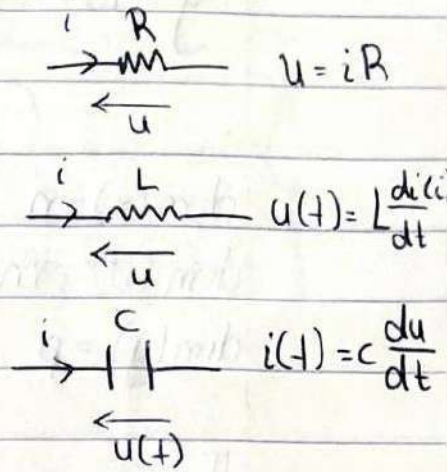 i R
u = iR
u
i L
u(t) = L di(i
dt
u
i C
i(t) = c du
dt
u(t)